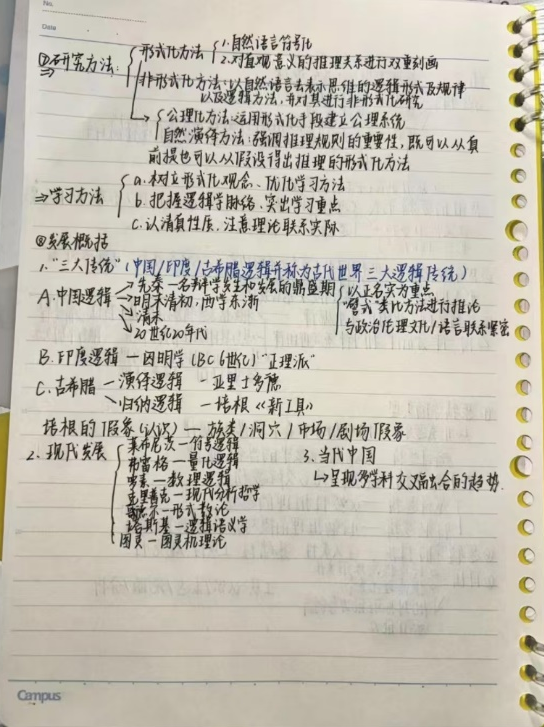 No.
Date
⑦研究方法:
形式化方法 1.自然语言符号化
2.对直观意义的推理关系进行双重刻画
非形式化方法:以自然语言去表示思维的逻辑形式及规律
以及逻辑方法,并对其进行非形式化研究
公理化方法:运用形式化手段建立公理系统
自然演绎方法:强调推理规则的重要性,既可以从真
前提也可以从假设得出推理的形式化方法
⇒学习方法
a.树立形式化观念、优化学习方法
b.把握逻辑学脉络、突出学习重点
c.认清其性质、注意理论联系实际
⑧发展概括
1."三大传统"(中国/印度/古希腊逻辑并称为古代世界三大逻辑传统)
A.中国逻辑
先秦—名辩学产生和发展的鼎盛期
明末清初,西学东渐
清末
20世纪20年代
以正名实为重点
譬式 类比方法进行推论
与政治伦理文化/语言联系紧密
B.印度逻辑—因明学(BC 6世纪)"正理派"
C.古希腊—演绎逻辑—亚里士多德
归纳逻辑—培根《新工具》
培根的假象(认识)—族类/洞穴/市场/剧场假象
2.现代发展
莱布尼茨—符号逻辑
弗雷格—量化逻辑
罗素—数理逻辑
克里普克—现代分析哲学
—形式数论
塔斯基—逻辑语义学
图灵—图灵机理论
3.当代中国
呈现多学科交叉融合的趋势
Campus